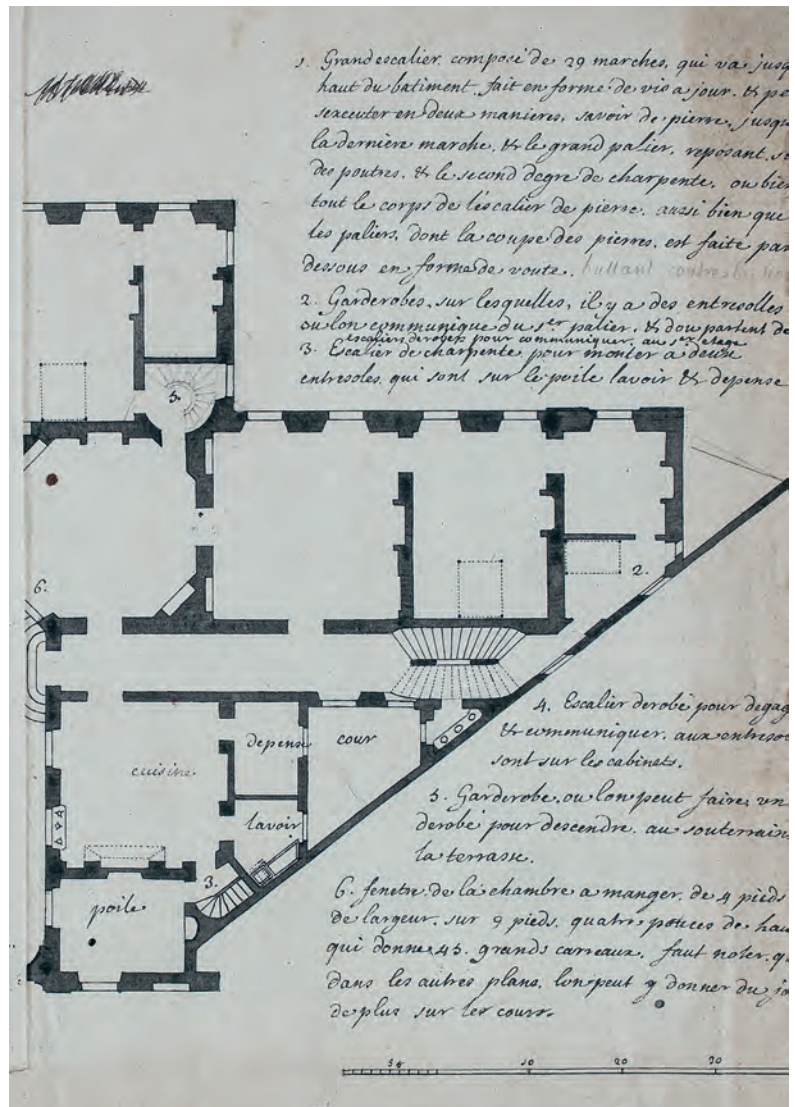 1. Grand escalier composé de 29 marches, qui va jusq
haut du batiment, fait en forme de vis a jour, & pe
sexecuter en deux manieres, savoir de pierre, jusqu
la derniere marche, & le grand palier, reposant, s
des poutres, & le second degre de charpente, ou bien
tout le corps de lescalier de pierre, aussi bien que
les paliers, dont la coupe des pierres, est faite par
dessous en forme de voute, buttant contre
2. Garderobes, sur lesquelles, il y a des entresolles
ou lon communique du 1er palier, & dou partent de
escaliers derobés pour communiquer, au 1er etage
3. Escalier de charpente, pour monter a deux
entresoles, qui sont sur le poile lavoir & depense
3.
6.
2.
4. Escalier derobé pour degag
& communiquer, aux entreso
sont sur les cabinets.
depense
cour
cuisine
5. Garderobe, ou lon peut faire, un
derobé pour descendre, au souterrain
la terrasse.
lavoir
3.
poile
6. fenetre de la chambre a manger, de 4 pieds
de largeur, sur 9 pieds, quatre pouces de hau
qui donne 45. grands carreaux, faut noter, q
dans les autres plans, lon peut y donner du jo
de plus sur les cours.
10 20 30